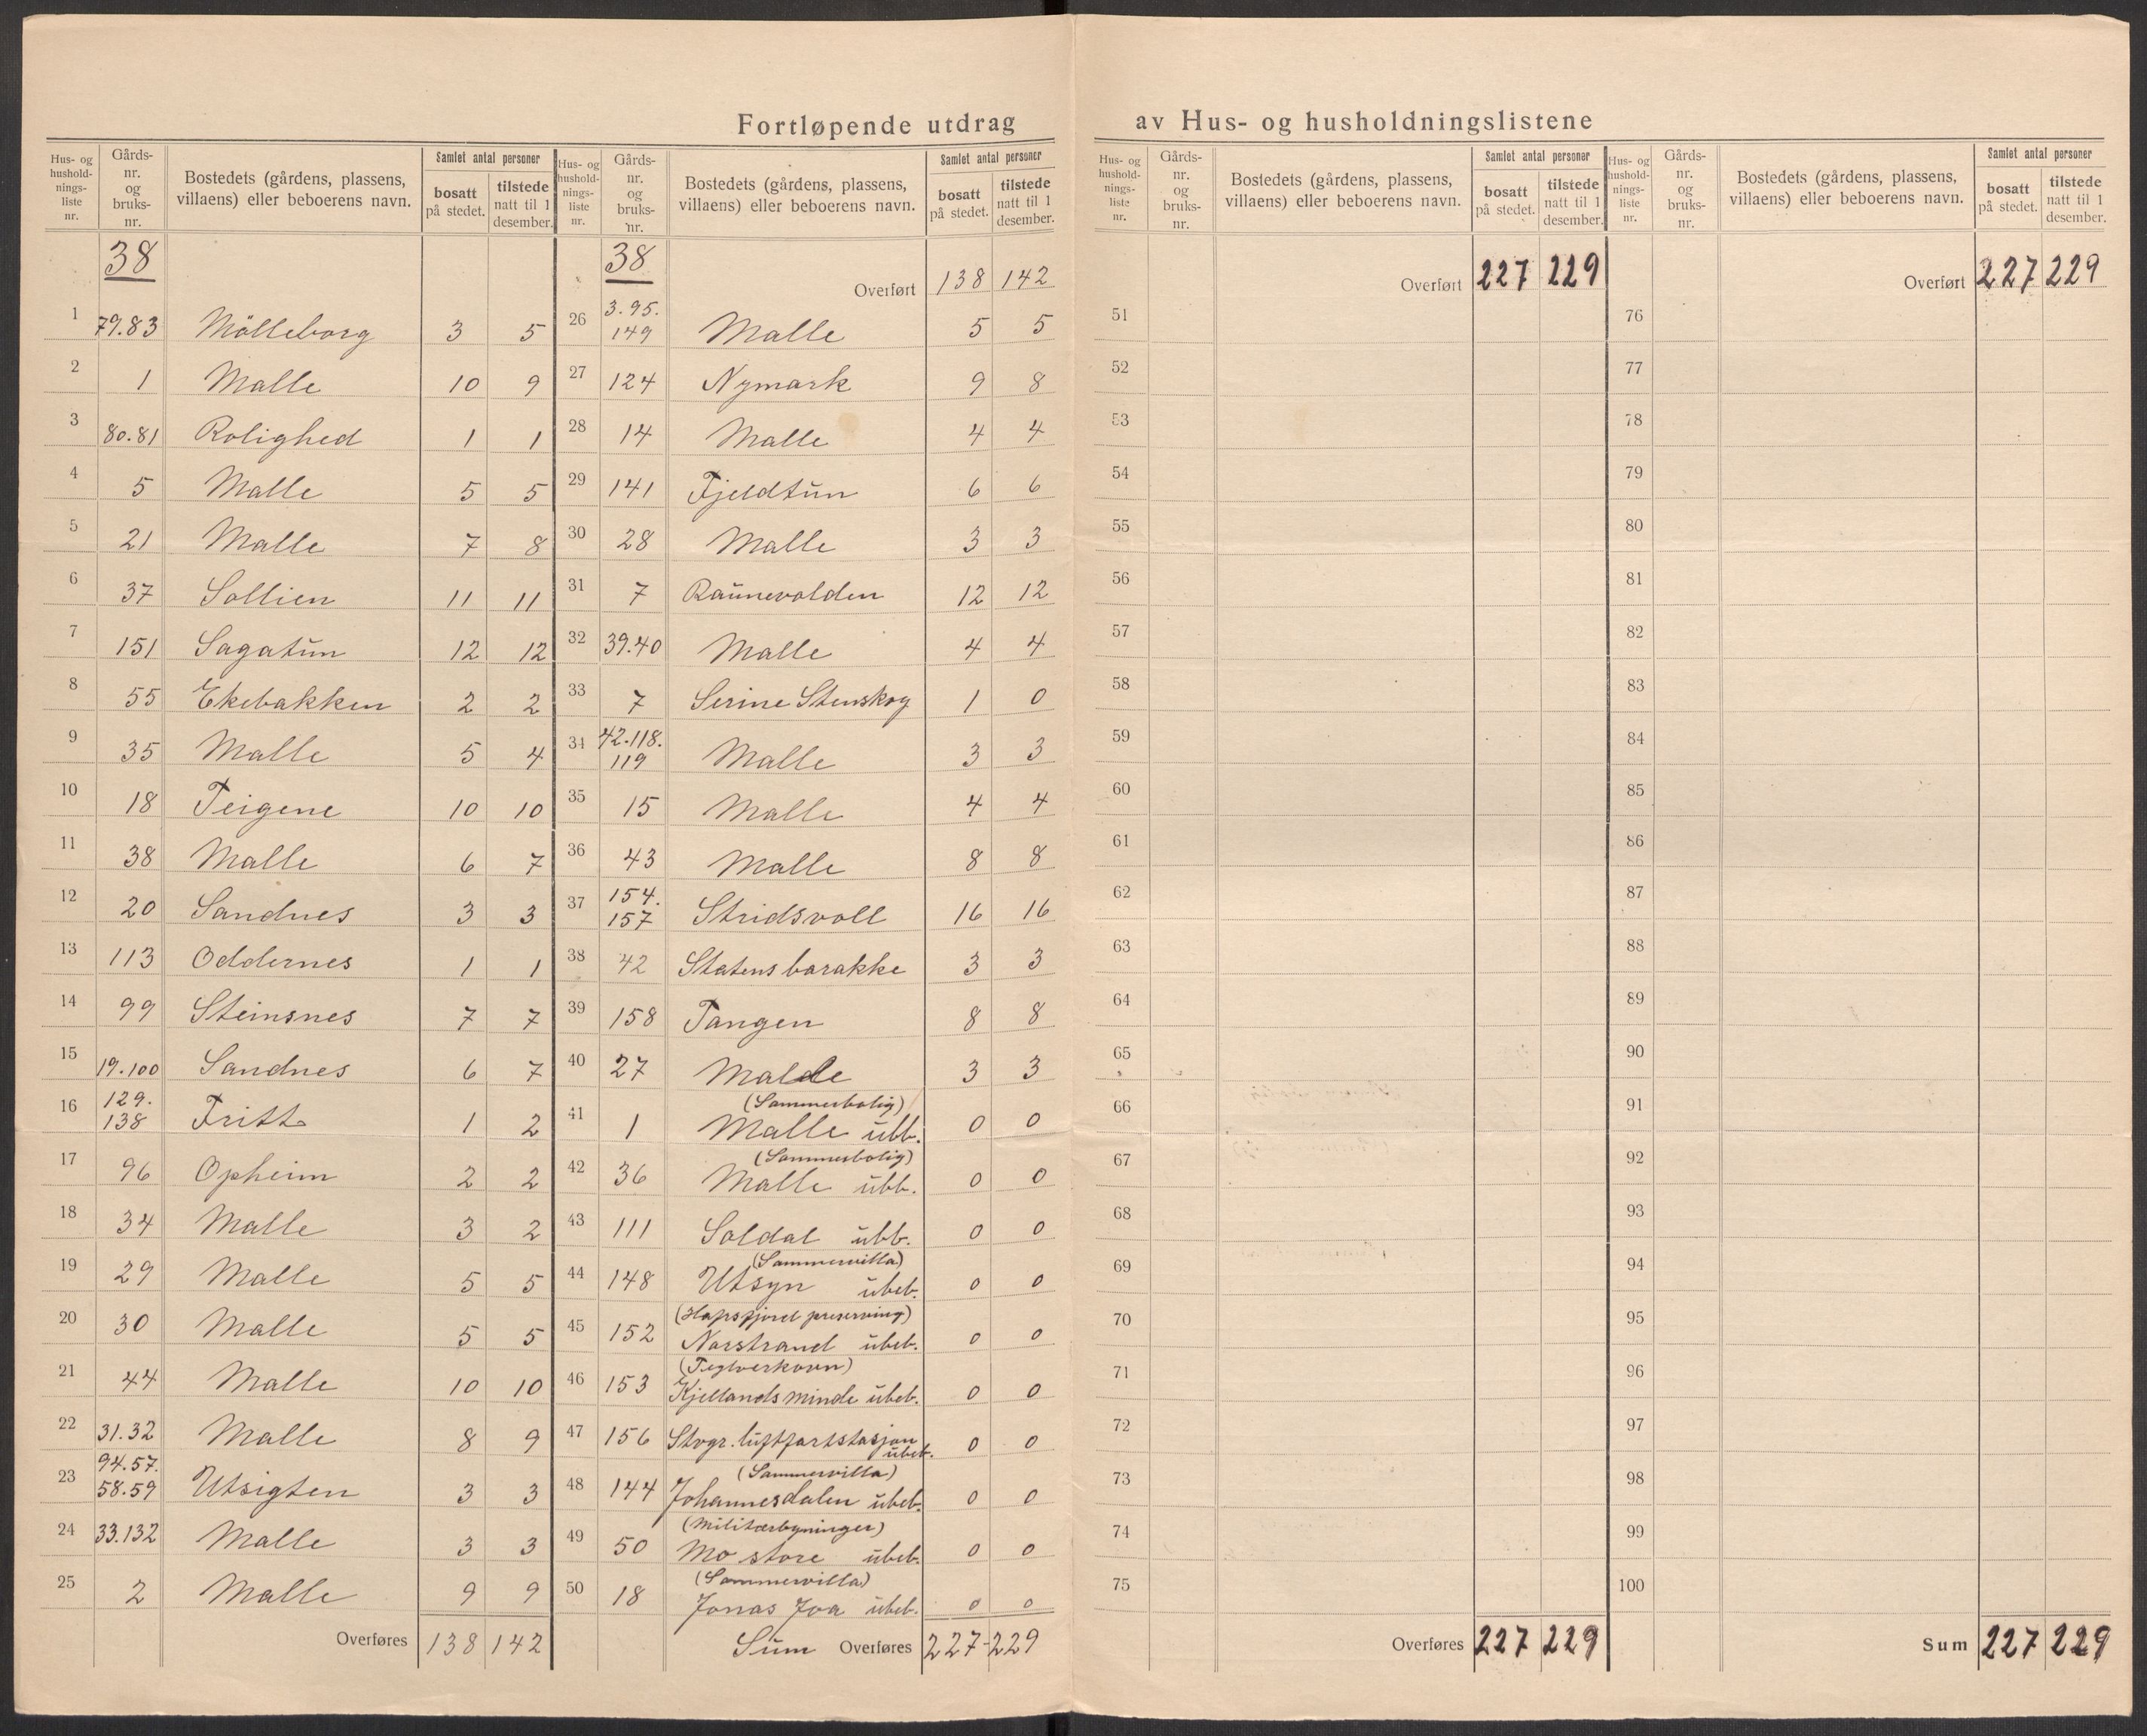 Fortløpende utdrag av Hus- og husholdningslistene
Hus- og husholdnings-liste nr. | Gårds-nr. og bruks-nr. | Bostedets (gårdens, plassens, villaens) eller beboerens navn. | Samlet antal personer | bosatt på stedet. | tilstede natt til 1 desember.
38
1 79.83 Mölleborg 3 5
2 1 Malle 10 9
3 80.81 Rolighed 1 1
4 5 Malle 5 5
5 21 Malle 7 8
6 37 Sollien 11 11
7 151 Sagatun 12 12
8 55 Ekebakken 2 2
9 35 Malle 5 4
10 18 Teigene 10 10
11 38 Malle 6 7
12 20 Sandnes 3 3
13 113 Oddernes 1 1
14 99 Steinsnes 7 7
15 19.100 Sandnes 6 7
16 129. 138 Fritt 1 2
17 96 Opheim 2 2
18 34 Malle 3 2
19 29 Malle 5 5
20 30 Malle 5 5
21 44 Malle 10 10
22 31.32 Malle 8 9
23 94.57. 58.59 Utsigten 3 3
24 33.132 Malle 3 3
25 2 Malle 9 9
Overføres 138 142
Hus- og hushold-nings-liste nr. | Gårds-nr. og bruks-nr. | Bostedets (gårdens, plassens, villaens) eller beboerens navn. | Samlet antal personer | bosatt på stedet. | tilstede natt til 1 desember.
38 Overført 138 142
26 3.95. 149 Malle 5 5
27 124 Nymark 9 8
28 14 Malle 4 4
29 141 Fjeldtun 6 6
30 28 Malle 3 3
31 7 Raunevolden 12 12
32 39.40 Malle 4 4
33 7 Serine Stenskog 1 0
34 42.118. 119 Malle 3 3
35 15 Malle 4 4
36 43 Malle 8 8
37 154. 157 Stridsvoll 16 16
38 42 Statens barakke 3 3
39 158 Tangen 8 8
40 27 Malle 3 3
(Sommerbolig)
41 1 Malle ubb. 0 0
(Sommerbolig)
42 36 Malle ubb. 0 0
43 111 Soldal ubb. 0 0
(Sommervilla)
44 148 Utsyn ubeb. 0 0
(Hafsfjord preserving)
45 152 Norstrand ubeb. 0 0
(Teglverkovn)
46 153 Kjellands minde ubeb. 0 0
47 156 Stvgr. luftfartstasjon ubeb. 0 0
(Sommervilla)
48 144 Johannesdalen ubeb. 0 0
(Militærbyninger)
49 50 Mo store ubeb. 0 0
(Sommervilla)
50 18 Jonas Joa ubeb. 0 0
Sum Overføres 227-229
Hus- og hushold-nings-liste nr. | Gårds-nr. og bruks-nr. | Bostedets (gårdens, plassens, villaens) eller beboerens navn. | Samlet antal personer | bosatt på stedet. | tilstede natt til 1 desember.
Overført 227 229
51
52
53
54
55
56
57
58
59
60
61
62
63
64
65
66
67
68
69
70
71
72
73
74
75
Overføres 227 229
Hus- og hushold-nings-liste nr. | Gårds-nr. og bruks-nr. | Bostedets (gårdens, plassens, villaens) eller beboerens navn. | Samlet antal personer | bosatt på stedet. | tilstede natt til 1 desember.
Overført 227 229
76
77
78
79
80
81
82
83
84
85
86
87
88
89
90
91
92
93
94
95
96
97
98
99
100
Sum 227 229